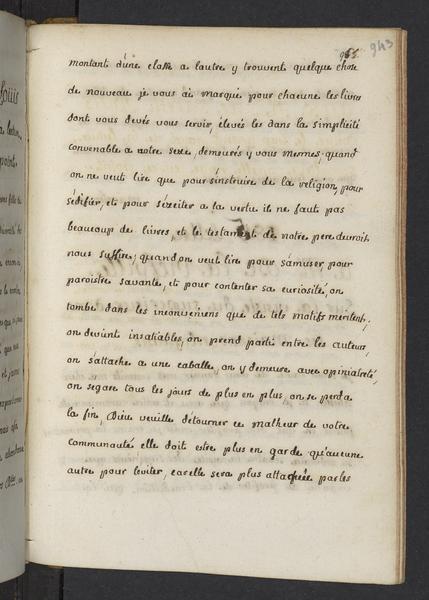 943
montant d'une classe a l'autre y trouvent quelque chose
de nouveau je vous ai marqué pour chacune les livres
dont vous devés vous servir, élevés les dans la simplicité
convenable a notre sexe, demeurés y vous mesmes, quand
on ne veut lire que pour s'instruire de la religion, pour
s'édifier, et pour s'éxciter a la vertu il ne faut pas
beaucoup de livres, et le testament de notre pere devroit
nous suffire, quand on veut lire pour s'amuser, pour
paroistre savante, et pour contenter sa curiosité, on
tombe dans les inconveniens que de tels motifs meritent,
on devient insatiables, on prend parti entre les auteurs,
on s'attache a une caballe, on y demeure avec opiniatreté,
on s'egare tous les jours de plus en plus, on se perd a
la fin, Dieu veuille detourner ce malheur de votre
communauté elle doit estre plus en garde qu'aucune
autre pour l'eviter, car elle sera plus attaquée par les